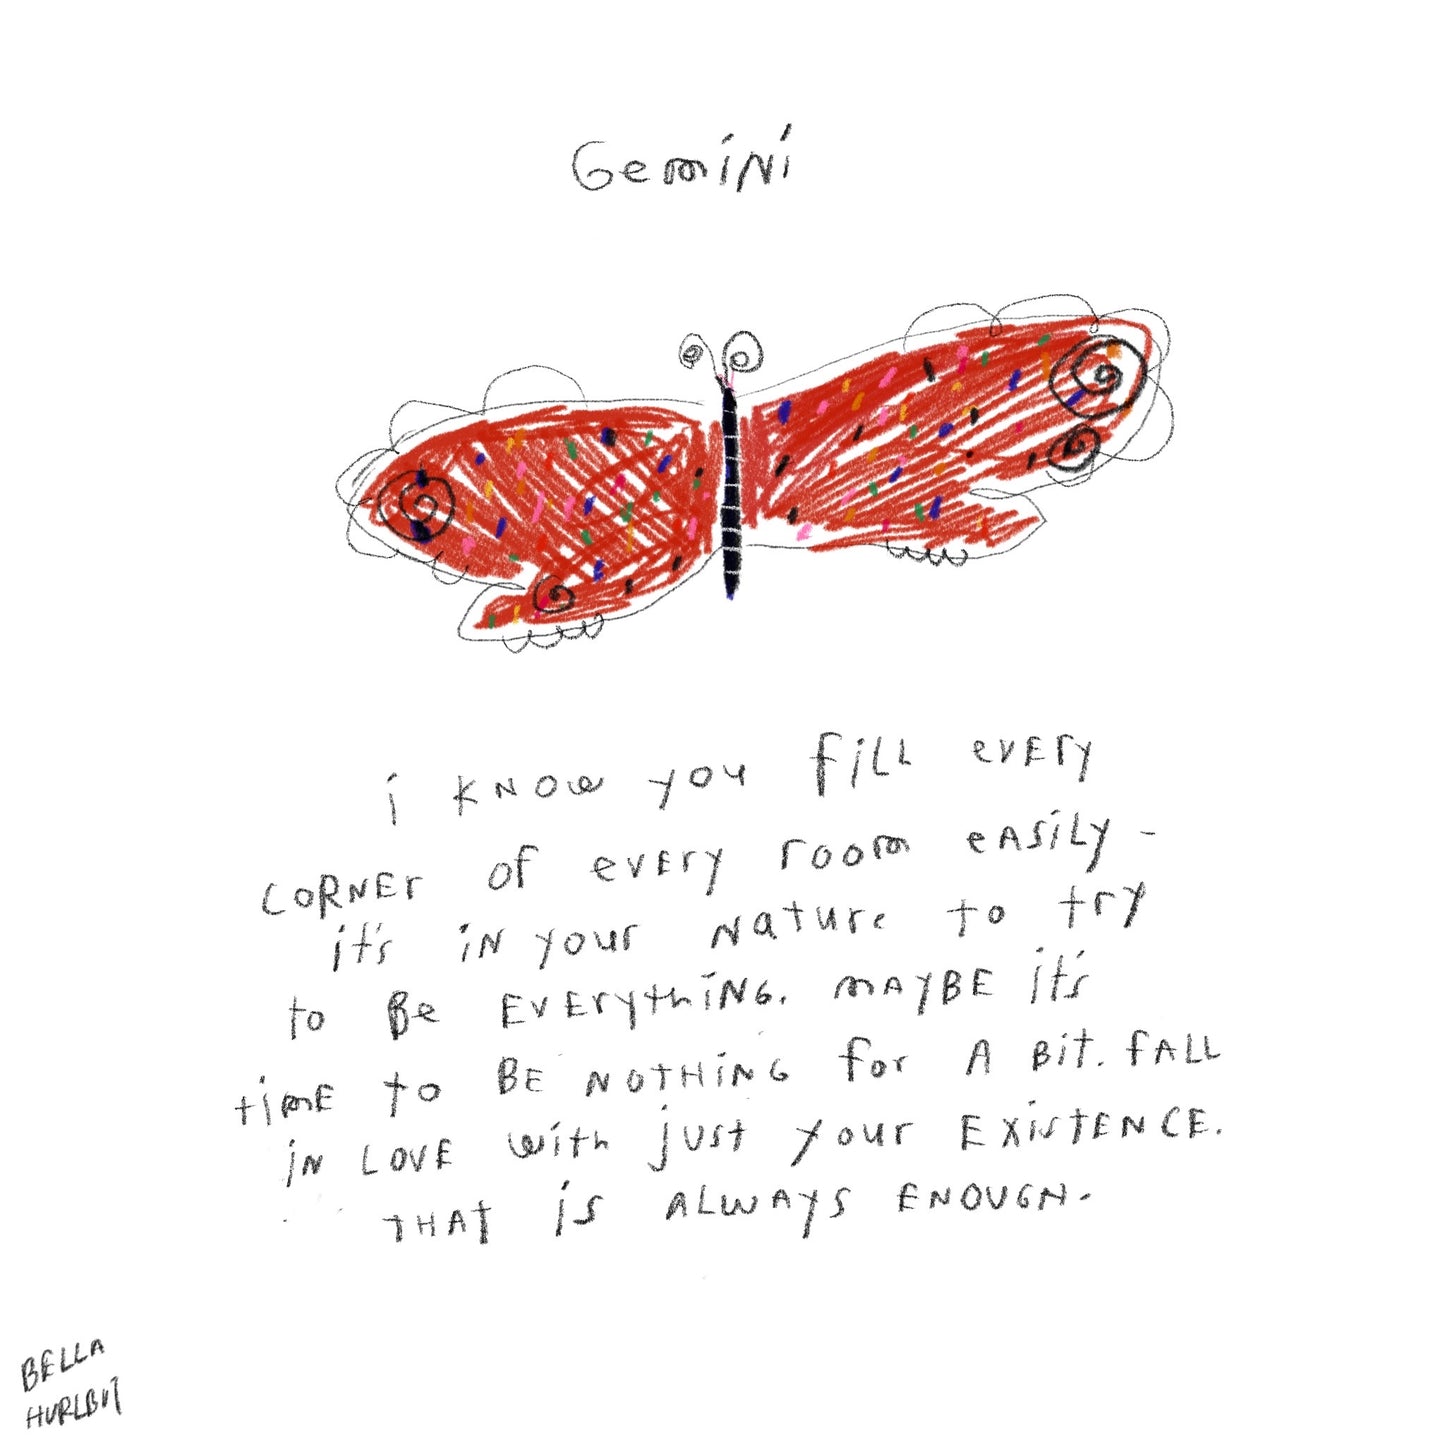 Gemini
i know you fill every
corner of every room easily -
it's in your nature to try
to be everything. maybe it's
time to be nothing for a bit. fall
in love with just your existence.
that is always enough.
BELLA
HURLBUT